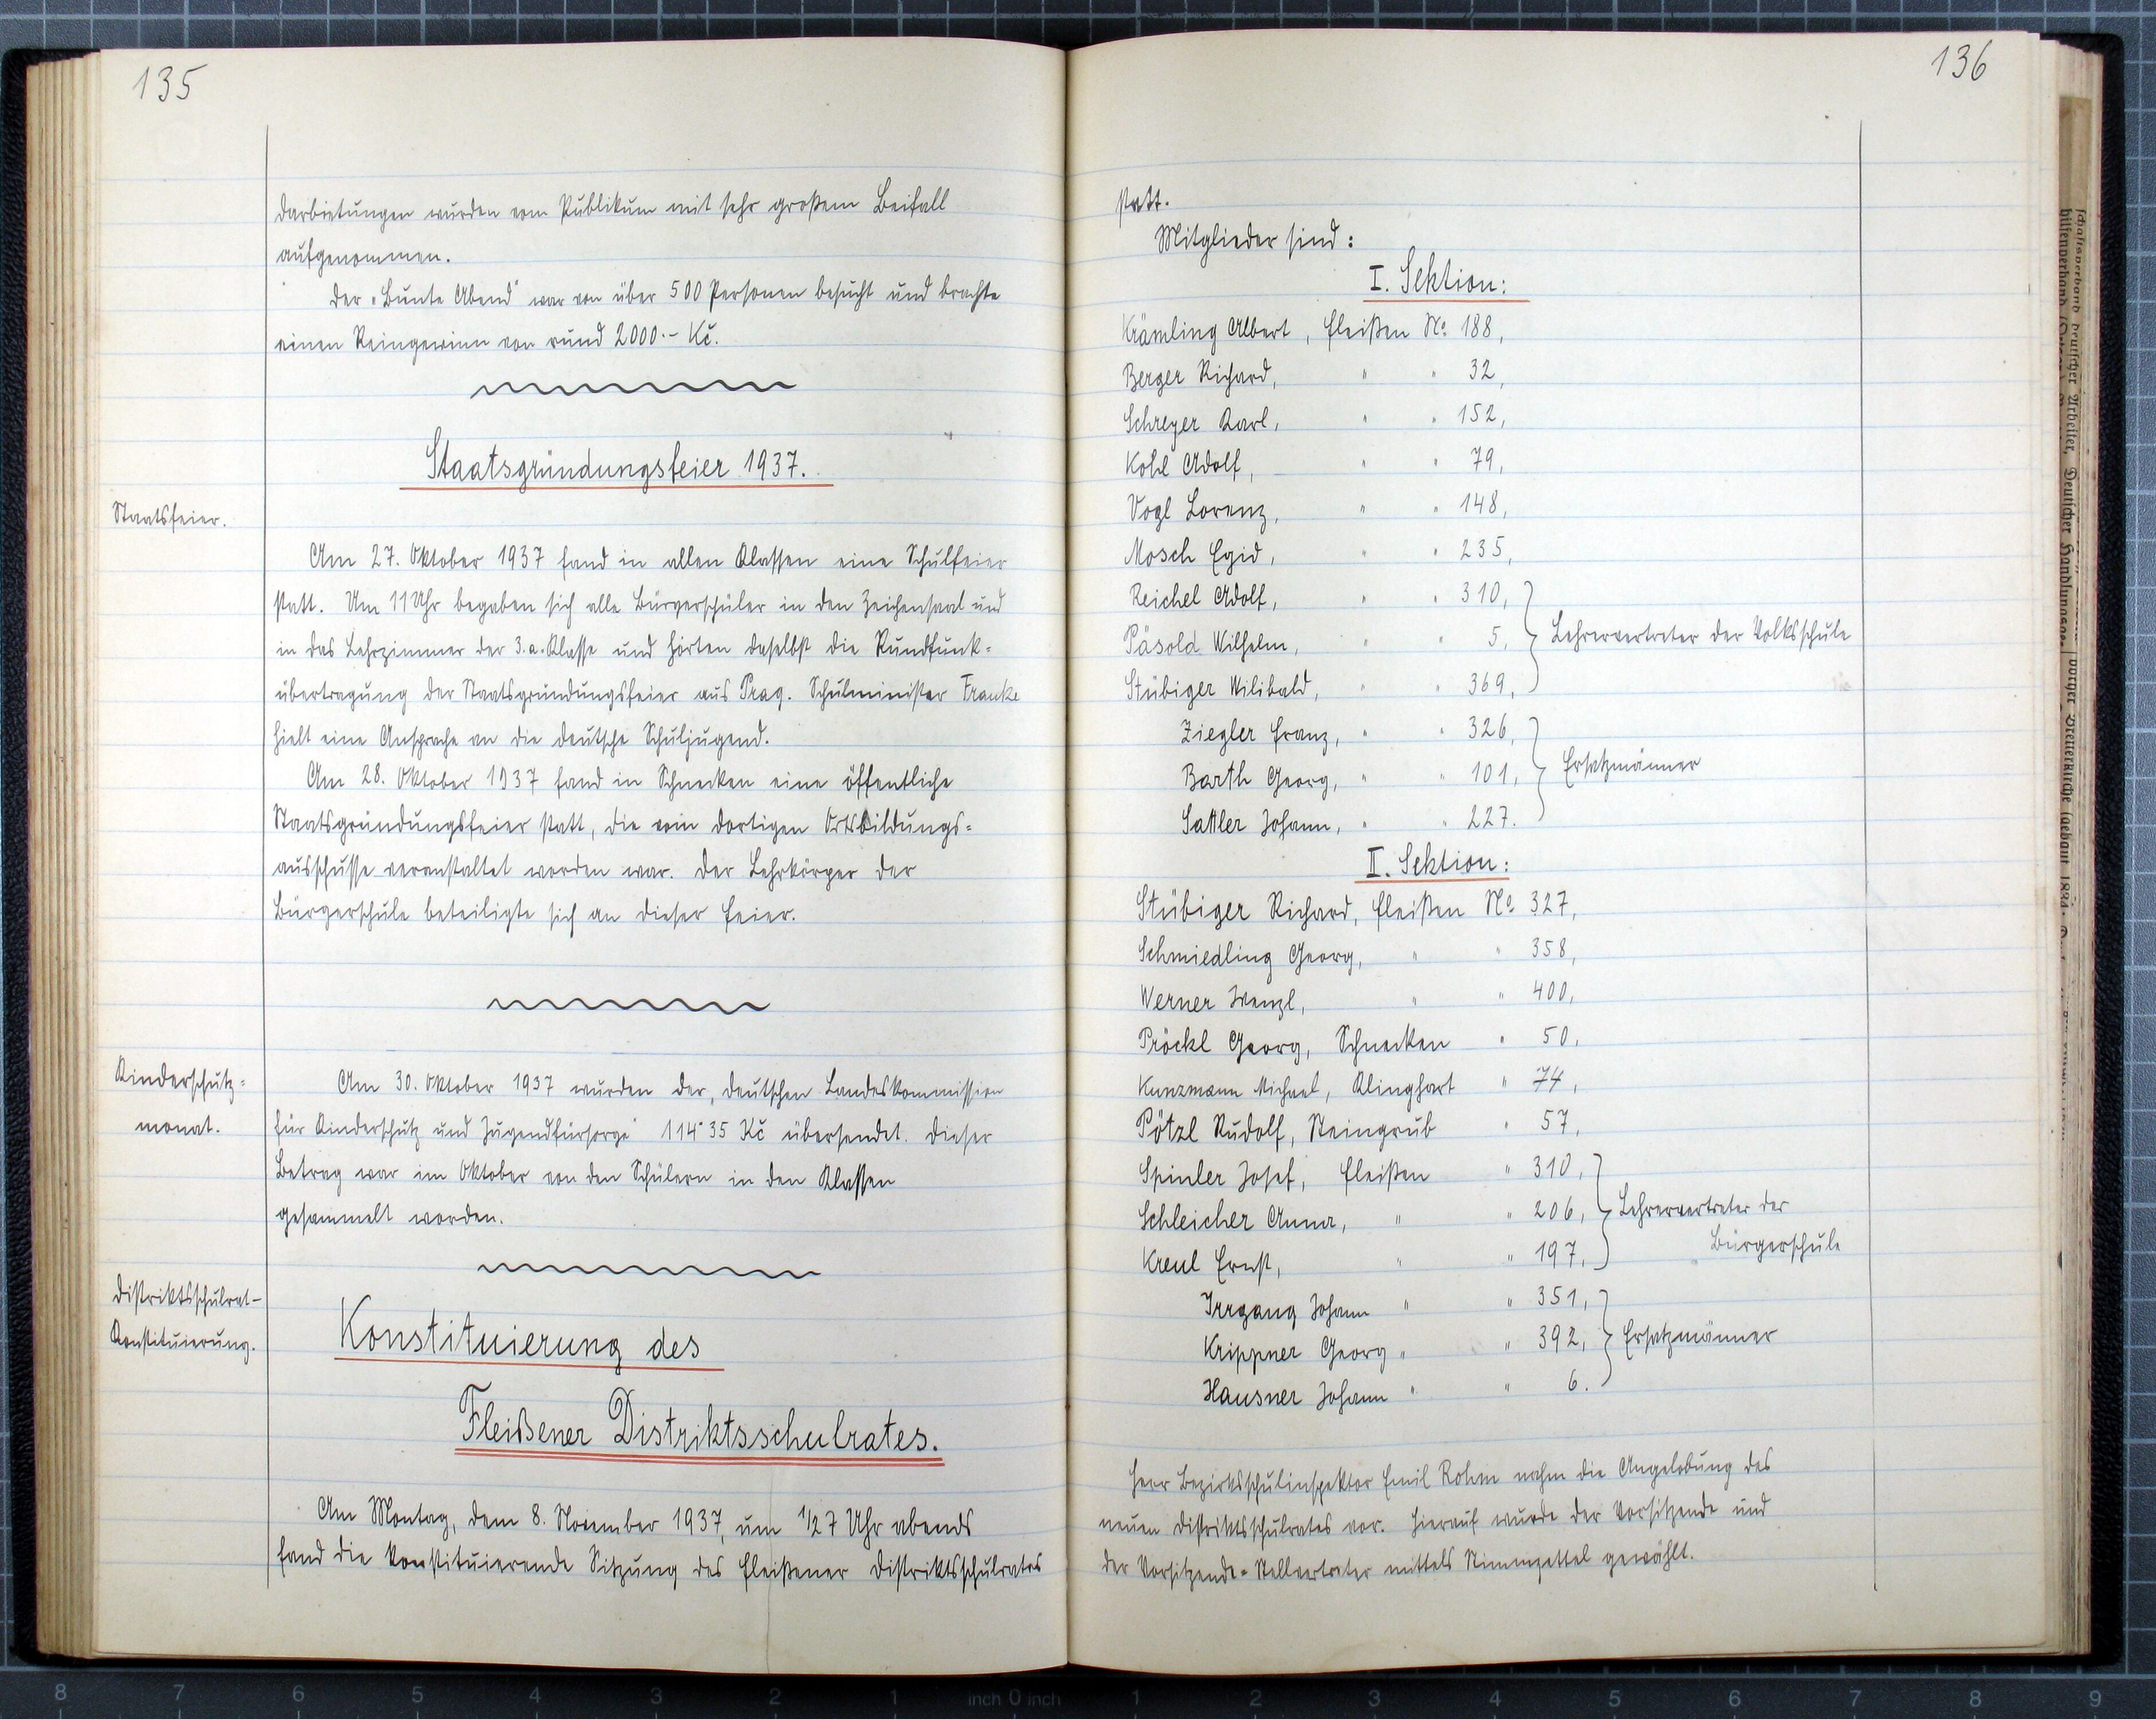 135
Darbietungen wurden vom Publikum mit sehr großem Beifall
aufgenommen.
Der „Bunte Abend" war von über 500 Personen besucht und brachte
einen Reingewinn von rund 2000.- Kč.
Staatsgründungsfeier 1937.
Staatsfeier.
Am 27. Oktober 1937 fand in allen Klassen eine Schulfeier
statt. Um 11 Uhr begaben sich alle Bürgerschüler in den Zeichensaal und
in das Lehrzimmer der 3.a. Klasse und hörten daselbst die Rundfunk=
übertragung der Staatsgründungsfeier aus Prag. Schulminister Franke
hielt eine Ansprache an die deutsche Schuljugend.
Am 28. Oktober 1937 fand in Schnecken eine öffentliche
Staatsgründungsfeier statt, die vom dortigen Ortsbildungs=
ausschusse veranstaltet worden war. Der Lehrkörper der
Bürgerschule beteiligte sich an dieser Feier.
Kinderschutz=
monat.
Am 30. Oktober 1937 wurden der „Deutschen Landeskommission
für Kinderschutz und Jugendfürsorge" 114·35 Kč übersendet. Dieser
Betrag war im Oktober von den Schülern in den Klassen
gesammelt worden.
Distriktsschulrat-
Konstituierung.
Konstituierung des
Fleißener Distriktsschulrates.
Am Montag, dem 8. November 1937, um 1/2 7 Uhr abends
fand die konstituierende Sitzung des Fleißener Distriktsschulrates
136
statt.
Mitglieder sind:
I. Sektion:
Krämling Albert, Fleißen No 188,
Berger Richard, " " 32,
Schreyer Karl, " " 152,
Kohl Adolf, " " 79,
Vogl Lorenz, " " 148,
Mosch Egid, " " 235,
Reichel Adolf, " " 310,
Päsold Wilhelm, " " 5, Lehrervertreter der Volksschule
Stübiger Wilibald, " " 369,
Ziegler Franz, " " 326,
Barth Georg, " " 101, Ersatzmänner
Sattler Johann, " " 227.
II. Sektion:
Stübiger Richard, Fleißen No 327,
Schmiedling Georg, " " 358,
Werner Wenzl, " " 400,
Pröckl Georg, Schnecken " 50,
Kunzmann Michael, Klinghart " 74,
Pötzl Rudolf, Steingrub " 57,
Spinler Josef, Fleißen " 310,
Schleicher Anna, " " 206, Lehrervertreter der
Kreul Ernst, " " 197, Bürgerschule
Irrgang Johann " " 351,
Krippner Georg " " 392, Ersatzmänner
Hausner Johann " " 6.
Herr Bezirksschulinspektor Emil Rohm nahm die Angelobung des
neuen Distriktsschulrates vor. Hierauf wurde der Vorsitzende und
der Vorsitzende=Stellvertreter mittels Stimmzettel gewählt.
8 7 6 5 4 3 2 1 inch 0 inch 1 2 3 4 5 6 7 8 9